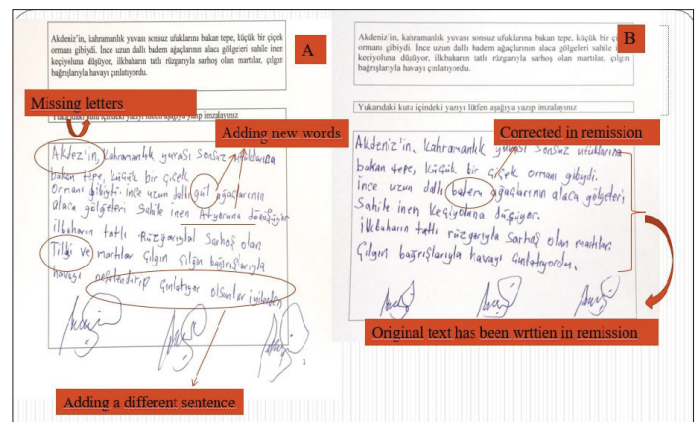 A
Akdeniz'in, kahramanlık yuvası sonsuz ufuklarını bakan tepe, küçük bir çiçek
ormanı gibiydi. İnce uzun dallı badem ağaçlarının alaca gölgeleri sahile inen
keçiyoluna düşüyor, ilkbaharın tatlı rüzgarıyla sarhoş olan martılar, çılgın
bağrışlarıyla havayı çınlatıyordu.
Missing letters
Yukarıdaki kutu içindeki yazıyı lütfen aşağıya yazıp imzalayınız
Adding new words
Akdez'in, Kahramanlık yuvası Sonsuz ufuklarına
bakan tepe, küçük bir çiçek
Ormanı gibiydi. ince uzun dallı gül ağaçlarının
alaca gölgeleri Sahile inen
ilkbaharın tatlı Rüzgarıyla Sarhoş olan
Tilgi ve martılar Çılgın Çılgın bağrışlarıyla
havayı Çınlatıyor olsunlar
Adding a different sentence
B
Akdeniz'in, kahramanlık yuvası sonsuz ufuklarına bakan tepe, küçük bir çiçek
ormanı gibiydi. İnce uzun dallı badem ağaçlarının alaca gölgeleri sahile
keçiyoluna düşüyor, ilkbaharın tatlı rüzgarıyla sarhoş olan martılar, çılgın
bağrışlarıyla havayı çınlatıyordu.
Yukarıdaki kutu içindeki yazıyı lütfen aşağıya yazıp imzalayınız
Corrected in remission
Akdeniz'in, Kahramanlık yuvası Sonsuz ufuklarına
bakan tepe, küçük bir çiçek ormanı gibiydi.
İnce uzun dallı badem ağaçlarının alaca gölgeleri
Sahile inen Keçiyoluna düşüyor.
ilkbaharın tatlı rüzgarıyla Sarhoş olan martılar
Çılgın bağrışlarıyla havayı Çınlatıyordu.
Original text has been wrttien in remission